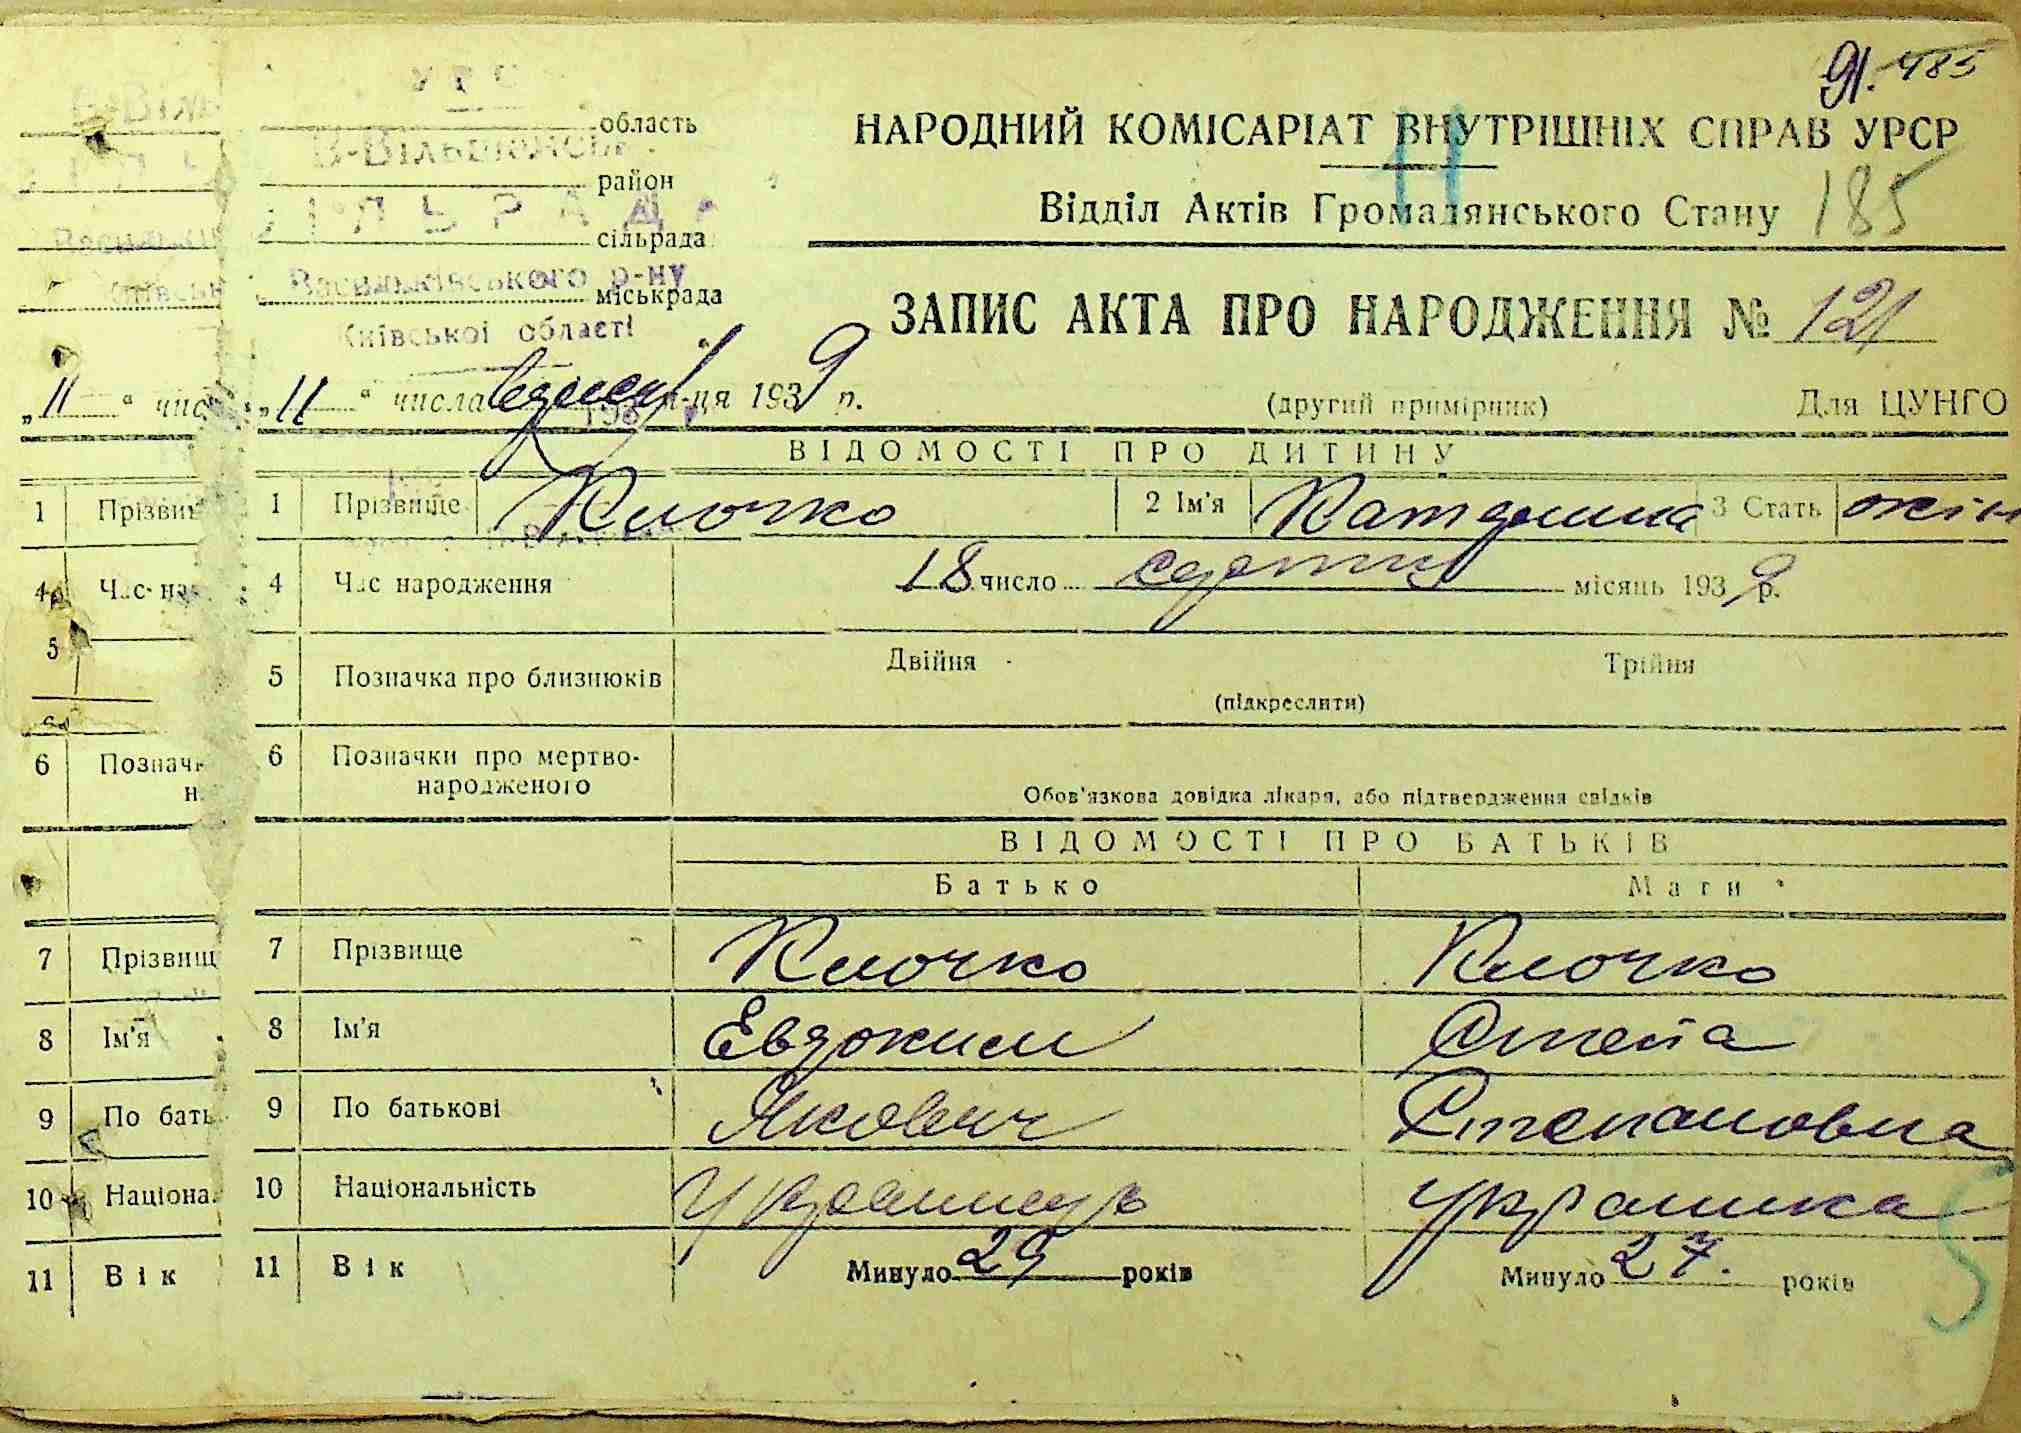 91. 485
УРС
область
В-Вільшанськ
район
СІЛЬРАДА
сільрада
Васильківського р-ну
міськрада
Київської області
НАРОДНИЙ КОМІСАРІАТ ВНУТРІШНІХ СПРАВ УРСР
Відділ Актів Громадянського Стану 185
ЗАПИС АКТА ПРО НАРОДЖЕННЯ № 121
„11“ чис „11“ числа вересня м-ця 1939 р.
(другий примірник) Для ЦУНГО
ВІДОМОСТІ ПРО ДИТИНУ
1 Прізвищ 1 Прізвище Клочко 2 Ім'я Катерина 3 Стать жін
4 Час на 4 Час народження 18 число серпня місяць 1939 р.
5 5 Позначка про близнюків Двійня Трійня
(підкреслити)
6 Позначк 6 Позначки про мертво-
н народженого
Обов'язкова довідка лікаря, або підтвердження свідків
ВІДОМОСТІ ПРО БАТЬКІВ
Батько Мати
7 Прізвищ 7 Прізвище Клочко Клочко
8 Ім'я 8 Ім'я Евдоким
9 По бать 9 По батькові Якович Степановна
10 Націона 10 Національність Українець Українка
11 Вік 11 Вік Минуло 29 років Минуло 27. років